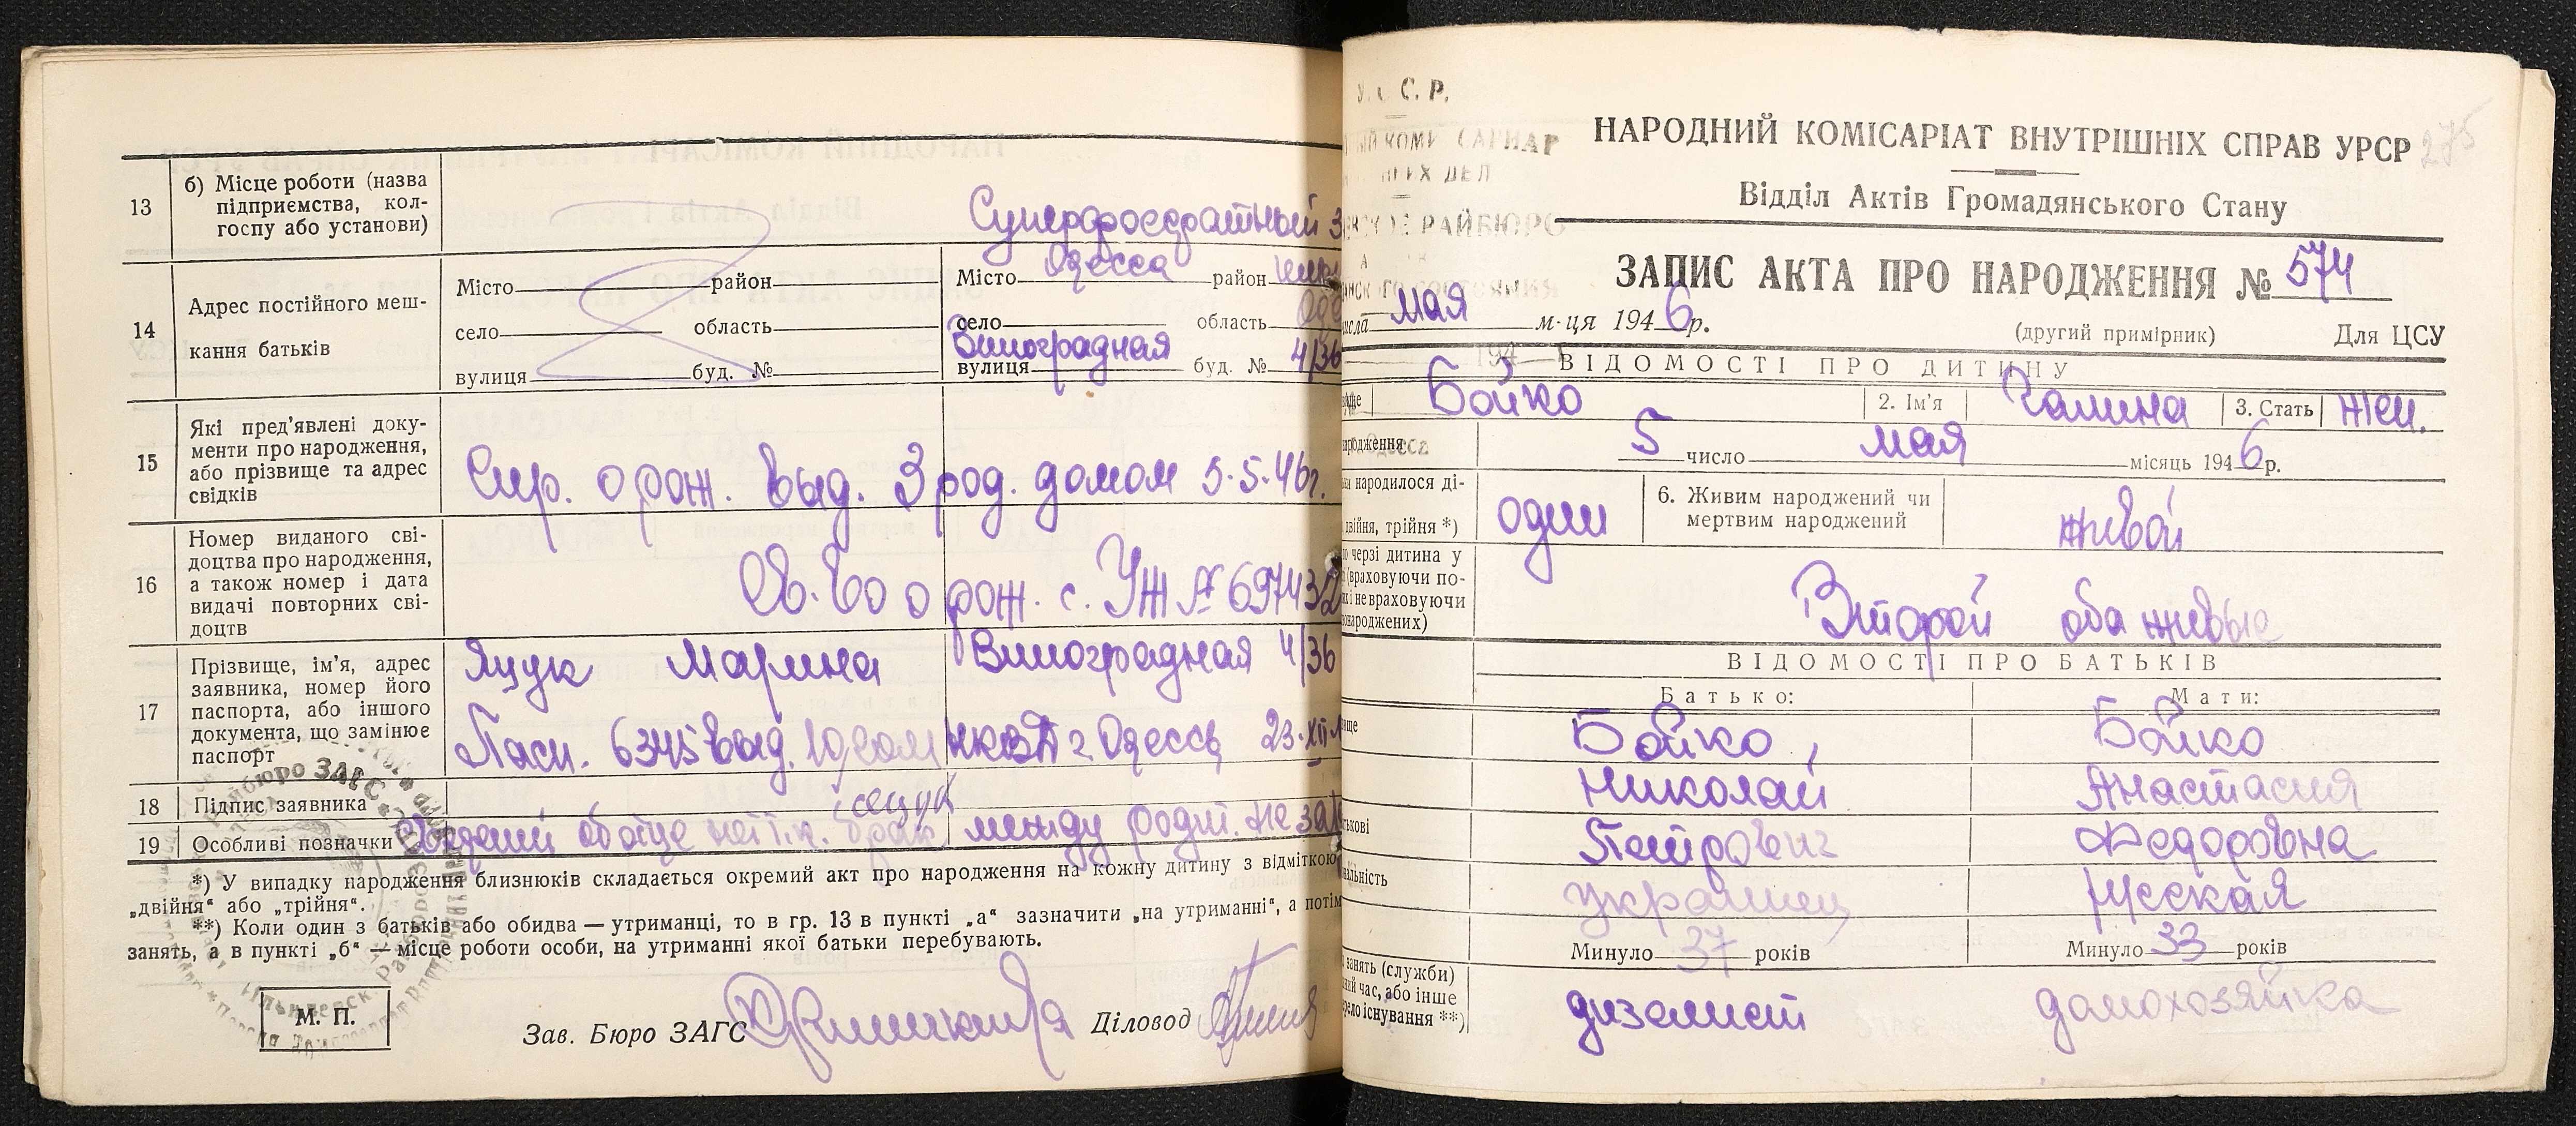 13
б) Місце роботи (назва
підприємства, кол-
госпу або установи)
Суперфосфатный з
14
Адрес постійного меш-
кання батьків
Місто район
село область
вулиця буд. №
Місто Одесса район
село область
Виноградная 4/36
вулиця буд. №
15
Які пред'явлені доку-
менти про народження,
або прізвище та адрес
свідків
Спр. о рож. выд. 3 род. домом 5.5.46г.
16
Номер виданого сві-
доцтва про народження,
а також номер і дата
видачі повторних сві-
доцтв
Св-во о рож. с. УЖ №
17
Прізвище, ім'я, адрес
заявника, номер його
паспорта, або іншого
документа, що замінює
паспорт
Яцук Марина Виноградная 4/36
Пасп. 6345 выд. НКВД г. Одессы 23.XII
18 Підпис заявника
19 Особливі позначки
брак между родит. не за
*) У випадку народження близнюків складається окремий акт про народження на кожну дитину з відміткою
„двійня“ або „трійня“.
**) Коли один з батьків або обидва — утриманці, то в гр. 13 в пункті „а“ зазначити „на утриманні“, а потім
занять, а в пункті „б“ — місце роботи особи, на утриманні якої батьки перебувають.
М. П.
Зав. Бюро ЗАГС
Діловод
С. Р.
РАЙБЮРО
НАРОДНИЙ КОМІСАРІАТ ВНУТРІШНІХ СПРАВ УРСР
275
Відділ Актів Громадянського Стану
ЗАПИС АКТА ПРО НАРОДЖЕННЯ № 574
числа мая м-ця 1946р.
(другий примірник) Для ЦСУ
ВІДОМОСТІ ПРО ДИТИНУ
Бойко 2. Ім'я Галина 3. Стать жен.
народження 5 число мая місяць 1946р.
народилося ді-
двійня, трійня *)
один
6. Живим народжений чи
мертвим народжений
живой
черзі дитина у
(враховуючи по-
і не враховуючи
народжених)
Второй оба живые
ВІДОМОСТІ ПРО БАТЬКІВ
Батько: Мати:
Бойко, Бойко
Николай Анастасия
Петрович Федоровна
украинец русская
Минуло 37 років Минуло 33 років
занять (служби)
час, або інше
існування **)
дизелист домохозяйка